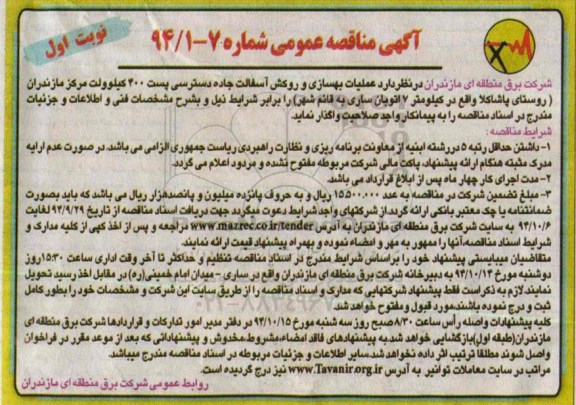 نوبت اول
آگهی مناقصه عمومی شماره ۷-۹۴/۱
شرکت برق منطقه ای مازندران درنظردارد عملیات بهسازی و روکش آسفالت جاده دسترسی پست ۴۰۰ کیلوولت مرکز مازندران
( روستای پاشاکلا واقع در کیلومتر ۷ اتوبان ساری به قائم شهر) را برابر شرایط ذیل و بشرح مشخصات فنی و اطلاعات و جزئیات
مندرج در اسناد مناقصه را به پیمانکار واجد صلاحیت واگذار نماید.
شرایط مناقصه :
۱- داشتن حداقل رتبه ۵ دررشته ابنیه از معاونت برنامه ریزی و نظارت راهبردی ریاست جمهوری الزامی می باشد. در صورت عدم ارایه
مدرک مثبته هنگام ارائه پیشنهاد، پاکت مالی شرکت مربوطه مفتوح نشده و مردود اعلام می گردد.
۲- مدت اجرای کار چهار ماه پس از ابلاغ قرارداد می باشد.
۳- مبلغ تضمین شرکت در مناقصه به عدد ۱۵،۵۰۰،۰۰۰ ریال و به حروف پانزده میلیون و پانصدهزار ریال می باشد که باید بصورت
ضمانتنامه یا چک معتبر بانکی ارائه گردد.از شرکتهای واجد شرایط دعوت میگردد جهت دریافت اسناد مناقصه از تاریخ ۹۴/۹/۲۹ لغایت
۹۴/۱۰/۶ به سایت شرکت برق منطقه ای مازندران به آدرس www.mazrec.co.ir/tender مراجعه و پس از اخذ کپی از کلیه مدارک و
شرایط اسناد مناقصه،آنها را ممهور به مهر و امضاء نموده و بهمراه پیشنهاد قیمت ارائه نمایند.
متقاضیان میبایستی پیشنهاد خود را براساس شرایط مندرج در اسناد مناقصه تنظیم و حداکثر تا آخر وقت اداری ساعت ۱۵:۳۰روز
دوشنبه مورخ ۹۴/۱۰/۱۴ به دبیرخانه شرکت برق منطقه ای مازندران واقع در ساری - میدان امام خمینی(ره) در مقابل اخذ رسید تحویل
نمایند.لازم به ذکر است فقط پیشنهاد شرکتهایی که مدارک و اسناد مناقصه را از طریق سایت این شرکت و مشخصات خود را بطور کامل
ثبت و درج نموده باشند،مورد قبول ومفتوح خواهد شد.
کلیه پیشنهادات واصله رأس ساعت ۸/۳۰صبح روز سه شنبه مورخ ۹۴/۱۰/۱۵ در دفتر مدیر امور تدارکات و قراردادها شرکت برق منطقه ای
مازندران(طبقه اول)بازگشایی خواهد شد.به پیشنهادهای فاقد امضاء،مشروط،مخدوش و پیشنهاداتی که بعد از موعد مقرر در فراخوان
واصل شوند مطلقا ترتیب اثر داده نخواهد شد.سایر اطلاعات و جزئیات مربوطه در اسناد مناقصه مندرج میباشد.
مراتب در سایت معاملات توانیر به آدرس www.Tavanir.org.ir نیز درج گردیده است.
روابط عمومی شرکت برق منطقه ای مازندران